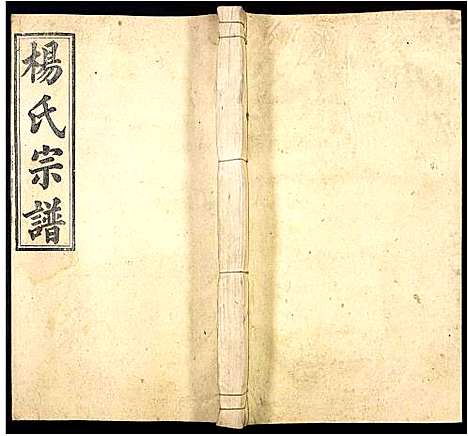 楊氏宗譜